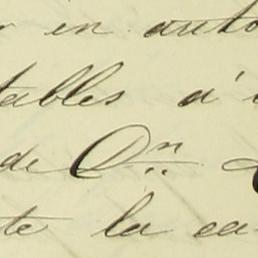 r en auto
tables á
de Dn.
te la ca